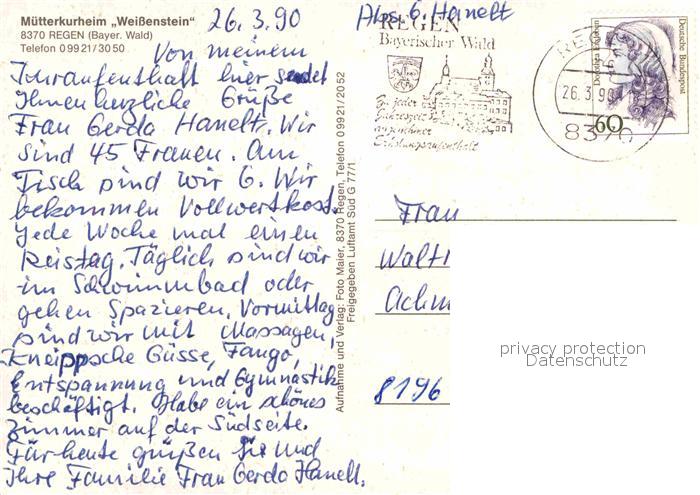 Mütterkurheim „Weißenstein"
8370 REGEN (Bayer. Wald)
Telefon 0 99 21/30 50
26.3.90
Von meinem
Kuraufenthalt hier sendet
Ihnen herzliche Grüße
Frau Gerda Hanelt. Wir
sind 45 Frauen. Am
Tisch sind wir 6. Wir
bekommen Vollwertkost.
Jede Woche mal einen
Reistag. Täglich sind wir
im Schwimmbad oder
gehen Spazieren. Vormittag
sind wir mit Massagen,
Kneippsche Güsse, Fango,
Entspannung und Gymnastik
beschäftigt. Habe ein schönes
Zimmer auf der Südseite.
Für heute grüßen Sie und
Ihre Familie Frau Gerda Hanelt.
Aufnahme und Verlag: Foto Maier, 8370 Regen, Telefon 0 99 21/20 52
Freigegeben Luftamt Süd G 77/1
Abs. G. Hanelt
REGEN
Bayerischer Wald
Zu jeder
Jahreszeit
angenehmer
Erholungsaufenthalt
REGEN
26.3.90
8370
Deutsche Bundespost
60
Frau
Walt
Achm
8196
privacy protection
Datenschutz